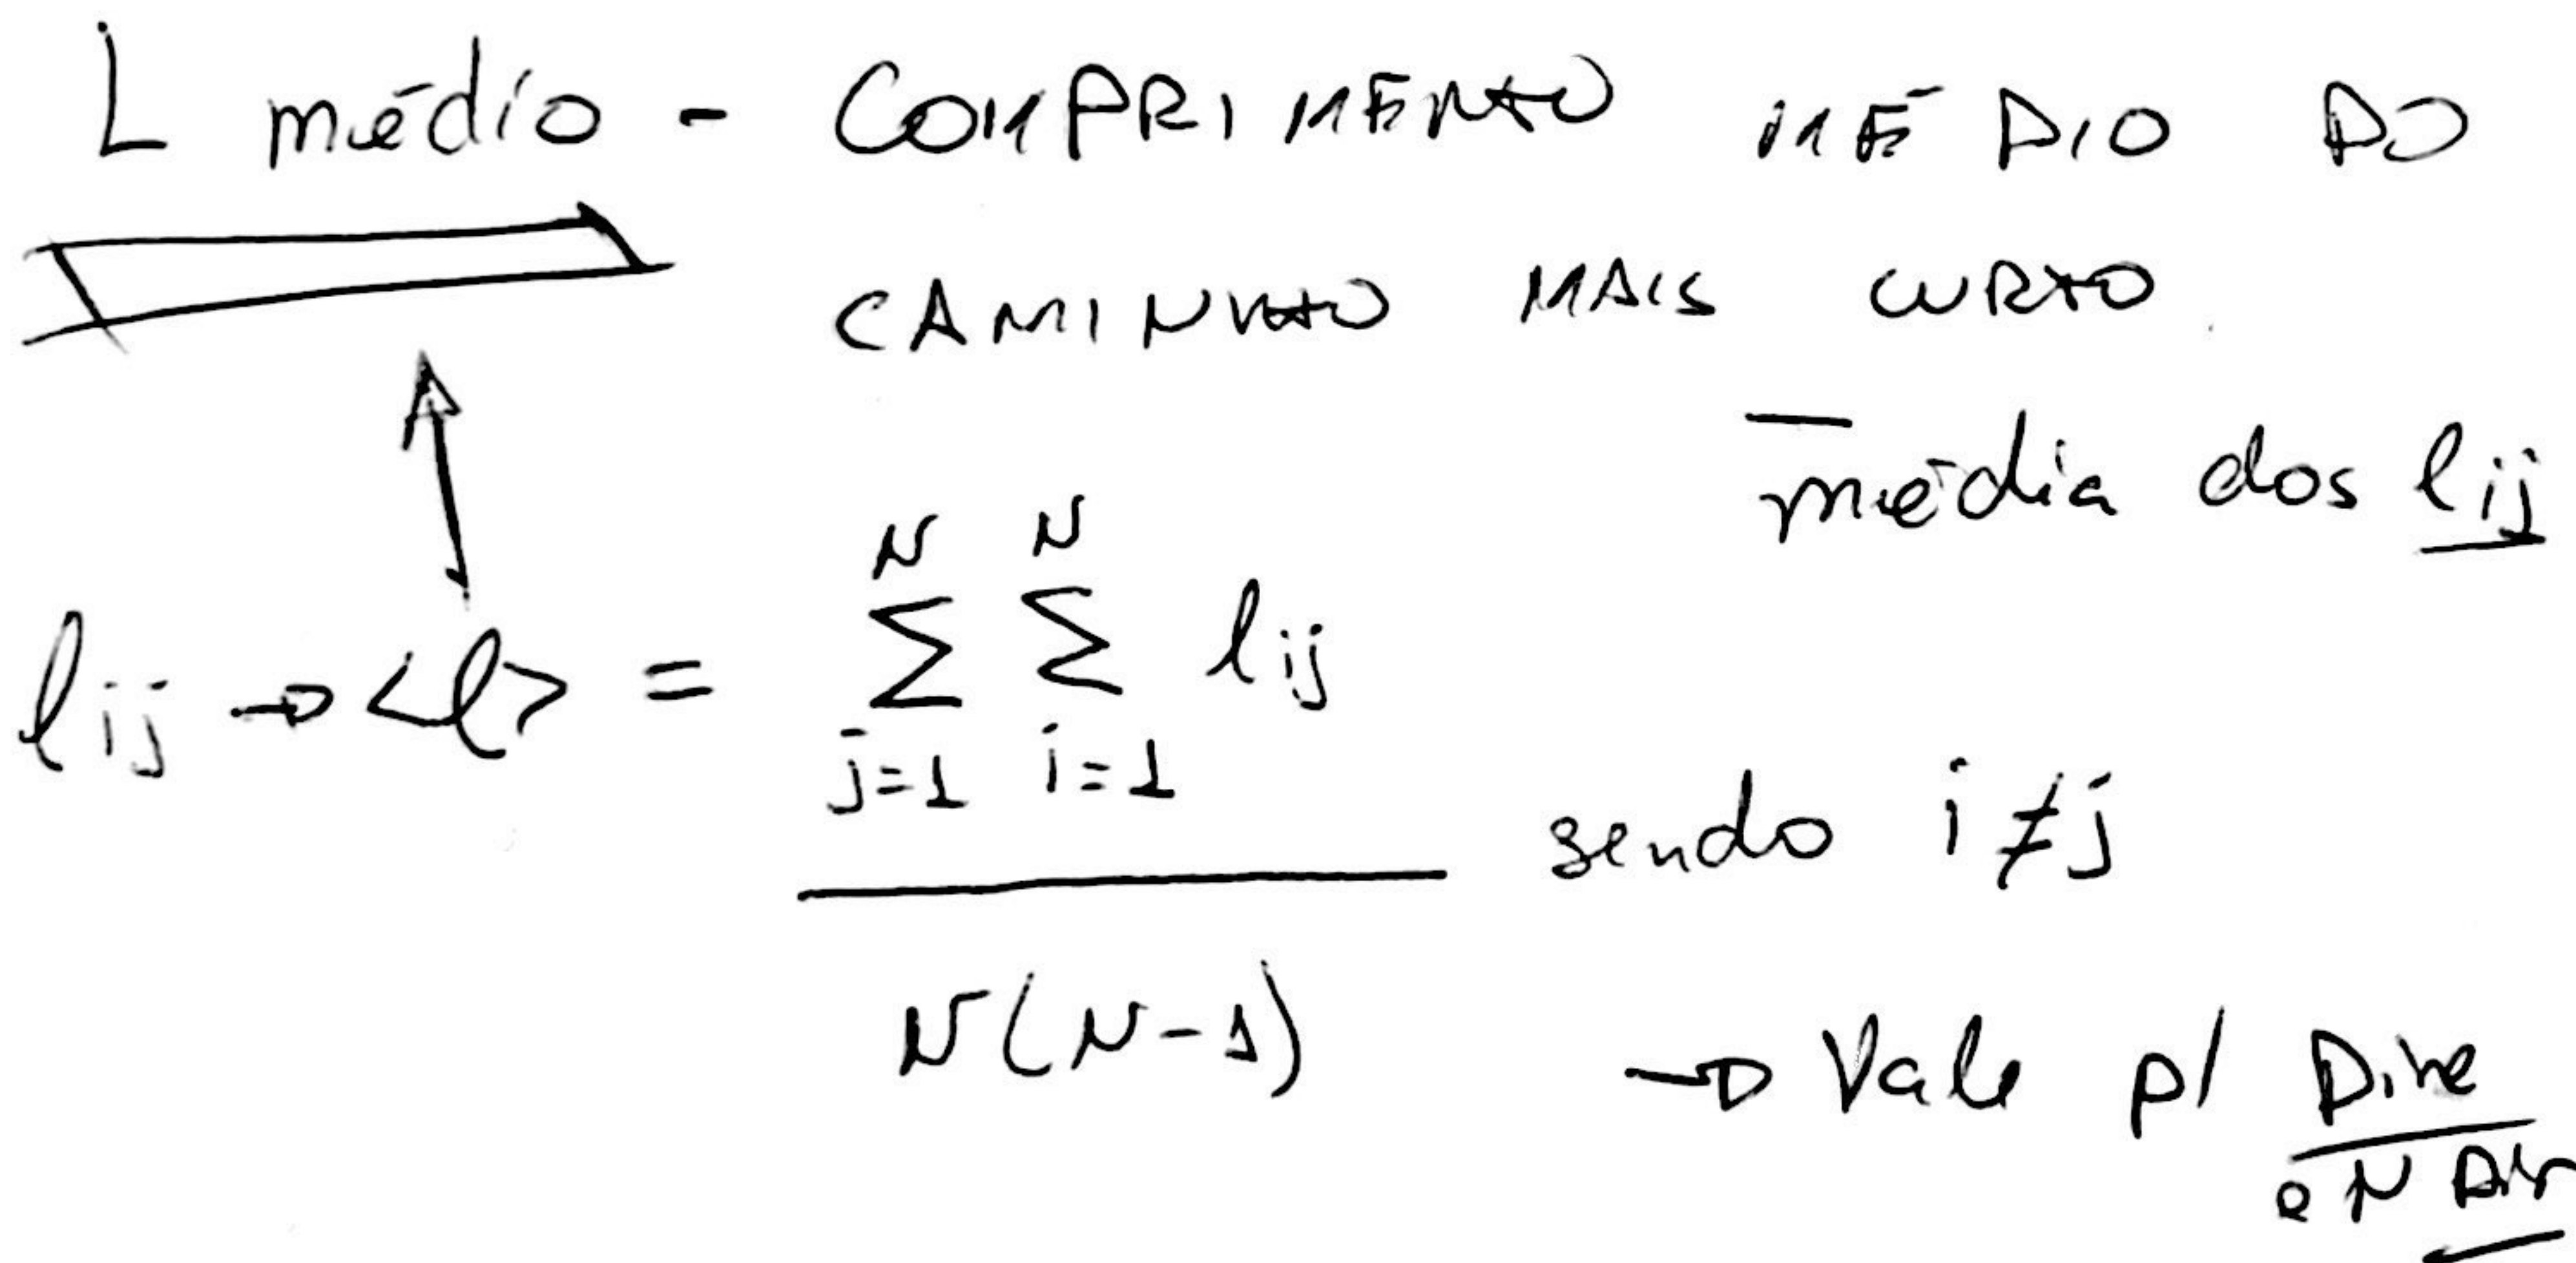 L médio - COMPRIMENTO MÉDIO DO
CAMINHO MAIS CURTO
média dos lij
lij → <l> = N Σ j=1 N Σ i=1 lij
sendo i ≠ j
N(N-1)
→ Vale p/ Dire
e N Dir